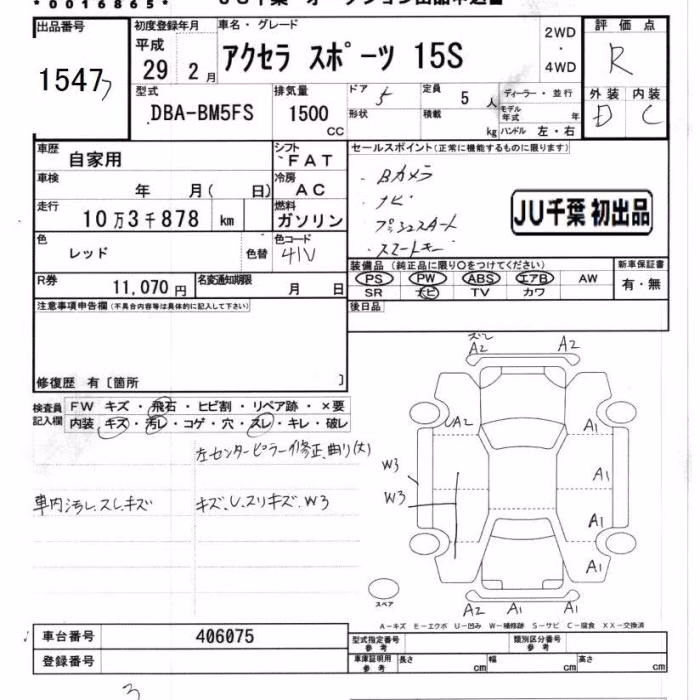 *0016865* JU千葉 オークション出品申込書
出品番号 初度登録年月 車名・グレード 2WD・4WD 評価点
1547 平成29年2月 アクセラ スポーツ 15S R
型式 排気量 ドア 定員 ディーラー・並行 外装 内装
DBA-BM5FS 1500cc 5 5人 モデル年式 年 D C
形状 積載 kg ハンドル 左・右
車歴 自家用 シフト FAT セールスポイント(正常に機能するものに限ります)
車検 年 月( 日) 冷房 AC ・Bカメラ
・ナビ
走行 10万3千878 km 燃料 ガソリン ・プッシュスタート
・スマートキー
JU千葉 初出品
色 レッド 色替 色コード 41V
装備品(純正品に限り○をつけてください) 新車保証書
R券 11,070円 名変通知期限 月 日 PS PW ABS エアB AW 有・無
SR ナビ TV カワ
注意事項申告欄(不具合内容等は具体的に記入して下さい) 後日品
修復歴 有〔箇所 〕
検査員記入欄 FW キズ・飛石・ヒビ割・リペア跡・×要
内装 キズ・汚レ・コゲ・穴・スレ・キレ・破レ
左センターピラー修正、曲り(大)
車内汚レ、スレ、キズ キズ、U、スリキズ、W3
ズレ
A2 A2
UA2 A1
W3 A1
W3
A1
A1
A2 A1
スペア
A-キズ E-エクボ U-凹み W-補修跡 S-サビ C-腐食 XX-交換済
車台番号 406075 型式指定番号 参考 類別区分番号 参考
登録番号 車庫証明用 参考 長さ cm 幅 cm 高さ cm
3